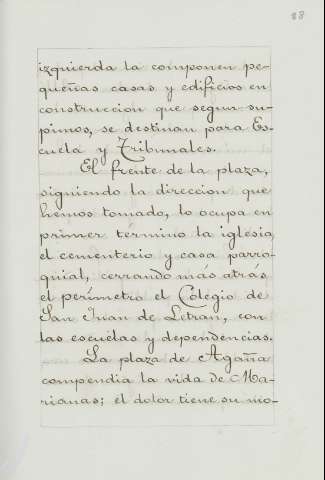 88
izquierda la componen pe-
queñas casas y edificios en
construccion que segun su-
pimos, se destinan para Es-
cuela y Tribunales.
El frente de la plaza,
siguiendo la direccion que
hemos tomado, lo ocupa en
primer término la iglesia,
el cementerio y casa parro-
quial, cerrando más atrás
el perímetro el Colegio de
San Juan de Letran, con
las escuelas y dependencias.
La plaza de Agaña
compendia la vida de Ma-
rianas; el dolor tiene su mo-